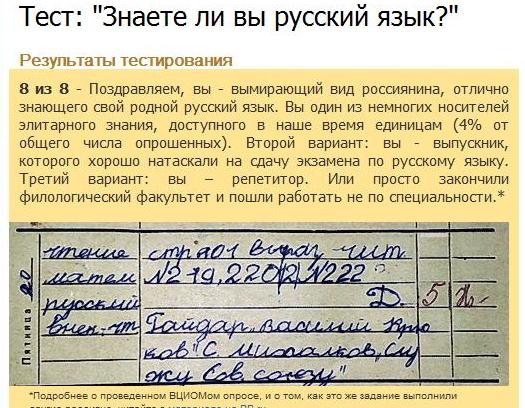 Тест: "Знаете ли вы русский язык?"
Результаты тестирования
8 из 8 - Поздравляем, вы - вымирающий вид россиянина, отлично
знающего свой родной русский язык. Вы один из немногих носителей
элитарного знания, доступного в наше время единицам (4% от
общего числа опрошенных). Второй вариант: вы - выпускник,
которого хорошо натаскали на сдачу экзамена по русскому языку.
Третий вариант: вы – репетитор. Или просто закончили
филологический факультет и пошли работать не по специальности.*
чтение стр 201 выраз чит
матем №219, 220(2), №222
русский Д. 5
внек. чт Гайдар "Василий Крю
ков" С. Михалков "Слу
жу Сов. союзу"
Пятница 20
*Подробнее о проведенном ВЦИОМом опросе, и о том, как это же задание выполнили